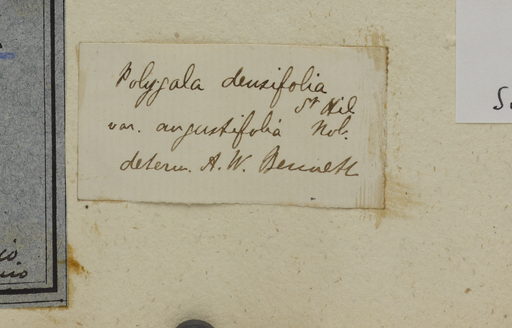 Polygala densifolia
St Hil
var. angustifolia Nob.
determ. A. W. Bennett